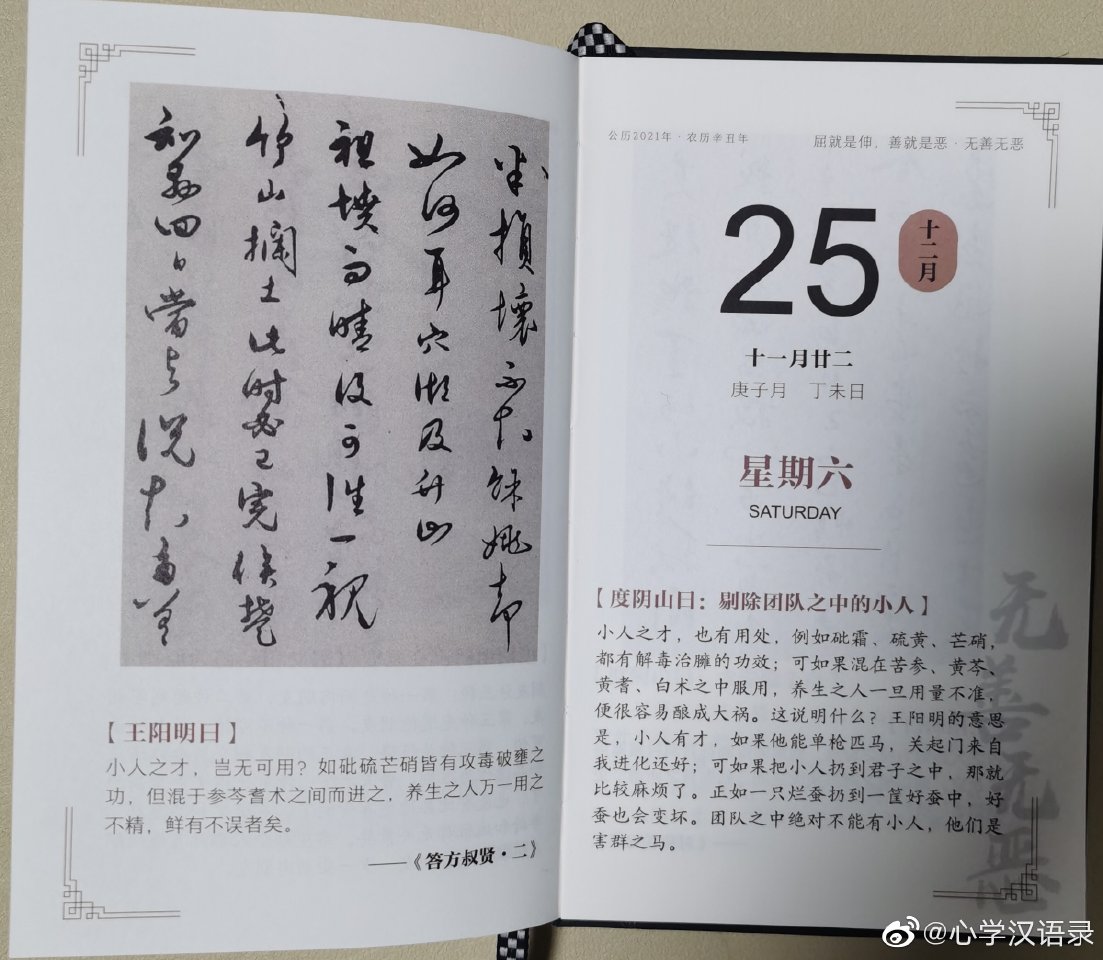 損壞不知餘姚却
如何耳穴湖及
祖墳雨晴後可往一視
竹山攔土此時必已完
四日當與説知
【王阳明曰】
小人之才，岂无可用？如砒硫芒硝皆有攻毒破壅之
功，但混于参芩耆术之间而进之，养生之人万一用之
不精，鲜有不误者矣。
——《答方叔贤·二》
公历2021年·农历辛丑年
屈就是伸，善就是恶·无善无恶
25
十二月
十一月廿二
庚子月 丁未日
星期六
SATURDAY
【度阴山曰：剔除团队之中的小人】
小人之才，也有用处，例如砒霜、硫黄、芒硝，
都有解毒治臃的功效；可如果混在苦参、黄芩、
黄耆、白术之中服用，养生之人一旦用量不准，
便很容易酿成大祸。这说明什么？王阳明的意思
是，小人有才，如果他能单枪匹马，关起门来自
我进化还好；可如果把小人扔到君子之中，那就
比较麻烦了。正如一只烂蚕扔到一筐好蚕中，好
蚕也会变坏。团队之中绝对不能有小人，他们是
害群之马。
无善无恶
@心学汉语录